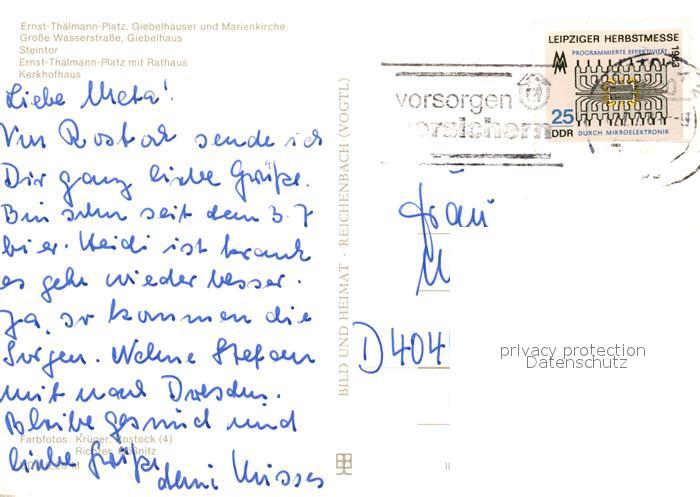 Ernst-Thälmann-Platz, Giebelhäuser und Marienkirche
Große Wasserstraße, Giebelhaus
Steintor
Ernst-Thälmann-Platz mit Rathaus
Kerkhofhaus
Liebe Meta!
Von Rostock sende ich
Dir ganz liebe Grüße.
Bin schon seit dem 3.7
hier. Heidi ist krank
es geht wieder besser.
Ja, so kommen die
Sorgen. Nehme Stefan
mit nach Dresden.
Bleibe gesund und
Farbfotos: Krüger, Rostock (4)
liebe Grüße
BILD UND HEIMAT · REICHENBACH (VOGTL)
LEIPZIGER HERBSTMESSE
1983
PROGRAMMIERTE EFFEKTIVITÄT
25
DDR
DURCH MIKROELEKTRONIK
1983
vorsorgen
versichern
Frau
M
D 404
privacy protection
Datenschutz